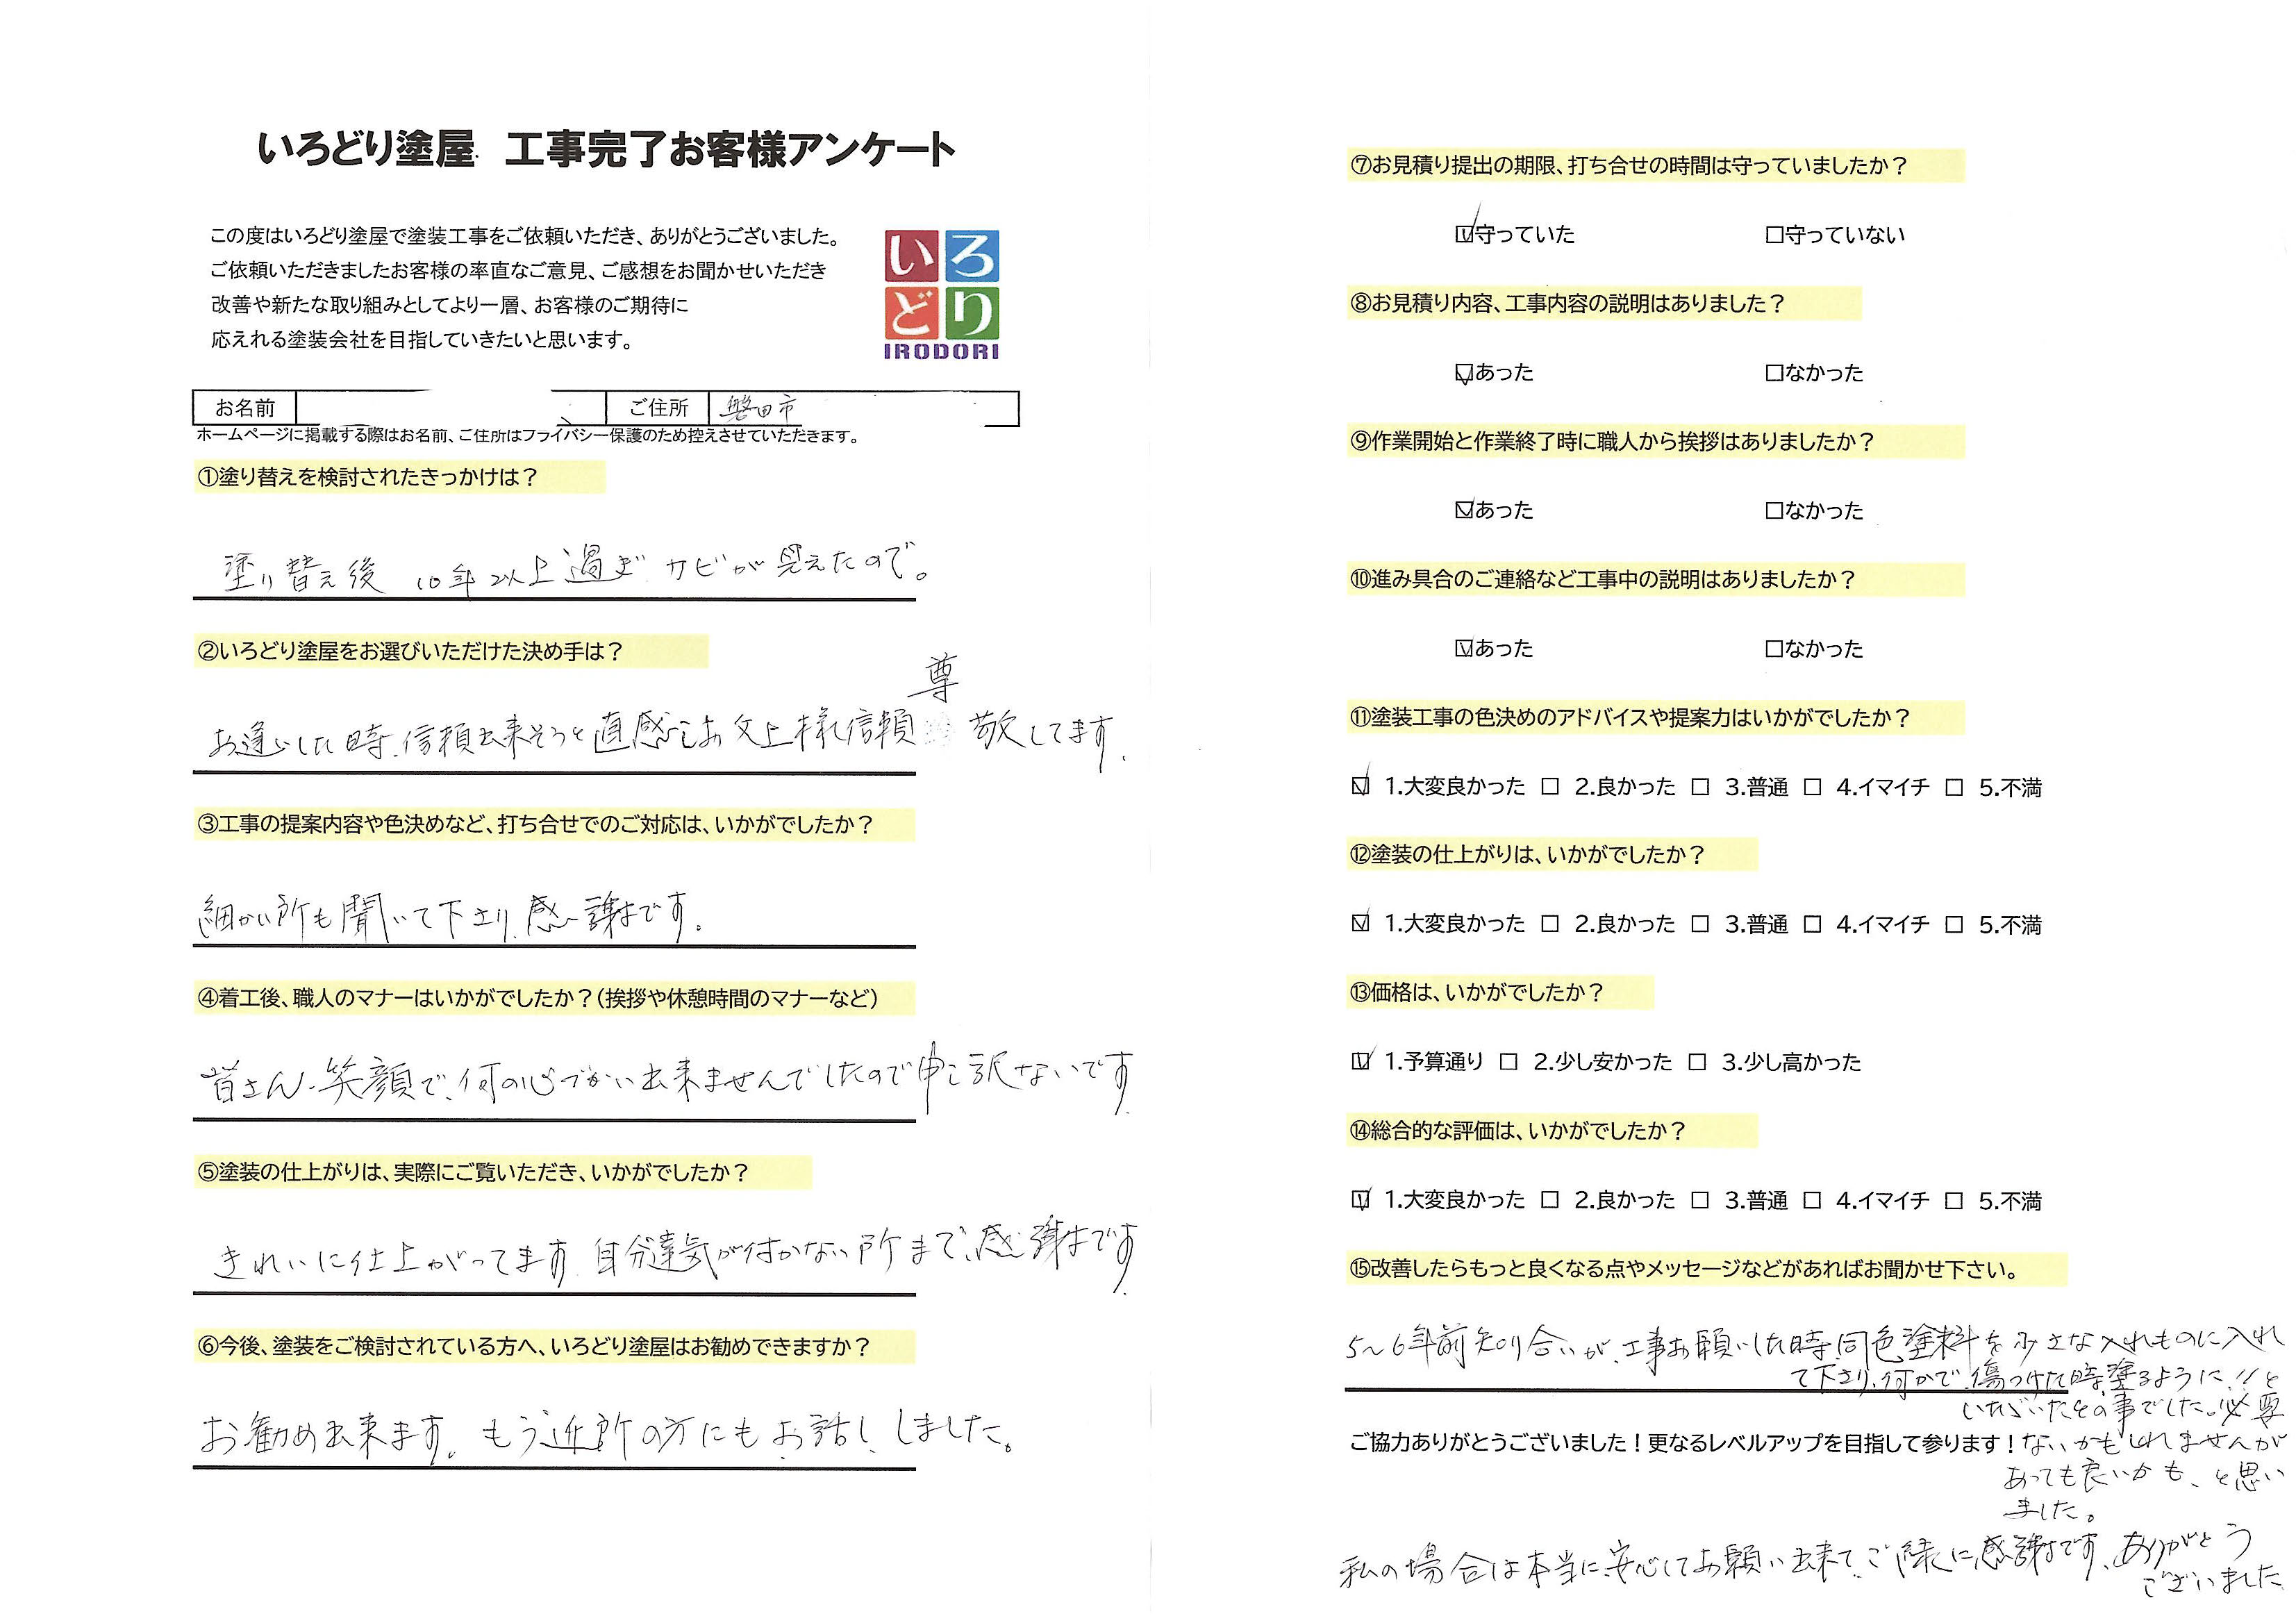 いろどり塗屋 工事完了お客様アンケート
この度はいろどり塗屋で塗装工事をご依頼いただき、ありがとうございました。
ご依頼いただきましたお客様の率直なご意見、ご感想をお聞かせいただき
改善や新たな取り組みとしてより一層、お客様のご期待に
応えれる塗装会社を目指していきたいと思います。
いろ
どり
IRODORI
お名前 ご住所 磐田市
ホームページに掲載する際はお名前、ご住所はプライバシー保護のため控えさせていただきます。
①塗り替えを検討されたきっかけは？
塗り替え後 10年以上過ぎ サビが見えたので。
②いろどり塗屋をお選びいただけた決め手は？
尊
お逢いした時、信頼出来そうと直感しお父上様信頼 敬してます。
③工事の提案内容や色決めなど、打ち合せでのご対応は、いかがでしたか？
細かい所も聞いて下さり、感謝です。
④着工後、職人のマナーはいかがでしたか？（挨拶や休憩時間のマナーなど）
皆さん、笑顔で、何の心づかい出来ませんでしたので申し訳ないです。
⑤塗装の仕上がりは、実際にご覧いただき、いかがでしたか？
きれいに仕上がってます。自分達気が付かない所まで、感謝です。
⑥今後、塗装をご検討されている方へ、いろどり塗屋はお勧めできますか？
お勧め出来ます。もう近所の方にもお話し、しました。
⑦お見積り提出の期限、打ち合せの時間は守っていましたか？
☑守っていた □守っていない
⑧お見積り内容、工事内容の説明はありました？
☑あった □なかった
⑨作業開始と作業終了時に職人から挨拶はありましたか？
☑あった □なかった
⑩進み具合のご連絡など工事中の説明はありましたか？
☑あった □なかった
⑪塗装工事の色決めのアドバイスや提案力はいかがでしたか？
☑ 1.大変良かった □ 2.良かった □ 3.普通 □ 4.イマイチ □ 5.不満
⑫塗装の仕上がりは、いかがでしたか？
☑ 1.大変良かった □ 2.良かった □ 3.普通 □ 4.イマイチ □ 5.不満
⑬価格は、いかがでしたか？
☑ 1.予算通り □ 2.少し安かった □ 3.少し高かった
⑭総合的な評価は、いかがでしたか？
☑ 1.大変良かった □ 2.良かった □ 3.普通 □ 4.イマイチ □ 5.不満
⑮改善したらもっと良くなる点やメッセージなどがあればお聞かせ下さい。
5～6年前知り合いが、工事お願いした時、同色塗料を少さな入れものに入れ
て下さり、何かで、傷つけた時、塗るように!!と
いただいたとの事でした。必要
ないかもしれませんが
あっても良いかも、と思い
ました。
ご協力ありがとうございました！更なるレベルアップを目指して参ります！
私の場合は本当に、安心してお願い出来て、ご縁に感謝です、ありがとう
ございました